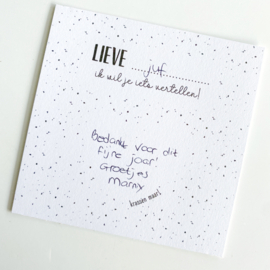 LIEVE ....juf............
ik wil je iets vertellen!
Bedankt voor dit
fijne jaar
Groetjes
Manny
krassen maar!